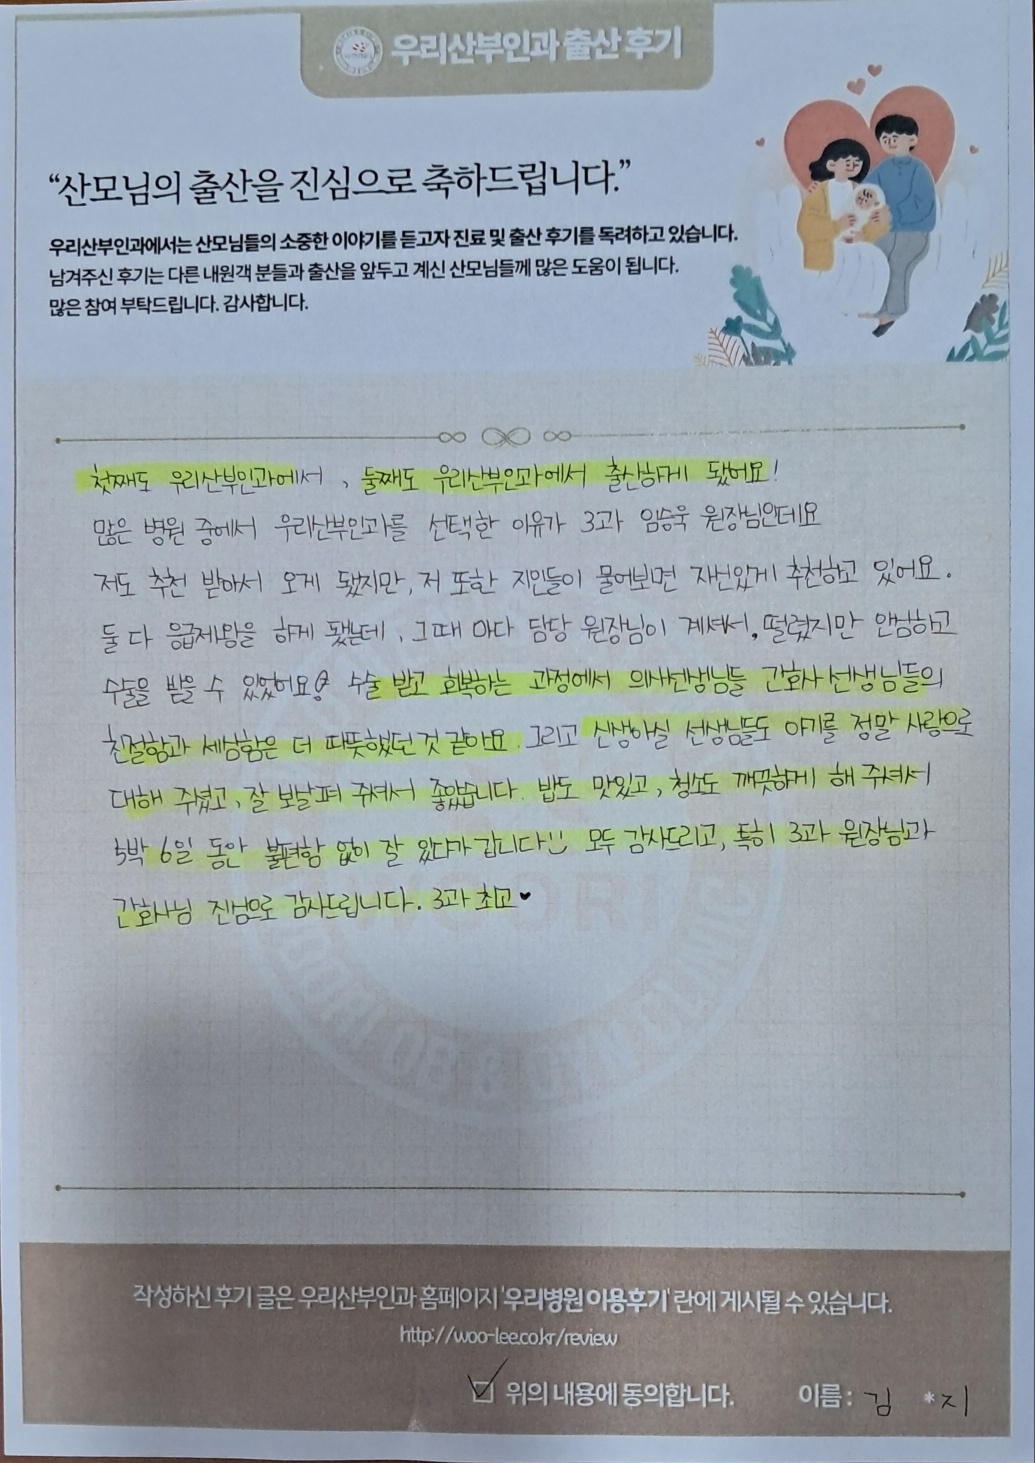 우리산부인과 출산 후기
“산모님의 출산을 진심으로 축하드립니다.”
우리산부인과에서는 산모님들의 소중한 이야기를 듣고자 진료 및 출산 후기를 독려하고 있습니다.
남겨주신 후기는 다른 내원객 분들과 출산을 앞두고 계신 산모님들께 많은 도움이 됩니다.
많은 참여 부탁드립니다. 감사합니다.
첫째도 우리산부인과에서, 둘째도 우리산부인과에서 출산하게 됐어요!
많은 병원 중에서 우리산부인과를 선택한 이유가 3과 임승욱 원장님인데요
저도 추천 받아서 오게 됐지만, 저 또한 지인들이 물어보면 자신있게 추천하고 있어요.
둘 다 응급제왕을 하게 됐는데, 그때 마다 담당 원장님이 계셔서, 떨렸지만 안심하고
수술을 받을 수 있었어요 수술 받고 회복하는 과정에서 의사선생님들 간호사 선생님들의
친절함과 세심함은 더 따뜻했던 것 같아요. 그리고 신생아실 선생님들도 아기를 정말 사랑으로
대해 주셨고, 잘 보살펴 주셔서 좋았습니다. 밥도 맛있고, 청소도 깨끗하게 해 주셔서
5박 6일 동안 불편함 없이 잘 있다가 갑니다 모두 감사드리고, 특히 3과 원장님과
간호사님 진심으로 감사드립니다. 3과 최고♥
WOORI
WOORI OB & GYN CLINIC
작성하신 후기 글은 우리산부인과 홈페이지 '우리병원 이용후기' 란에 게시될 수 있습니다.
http://woo-lee.co.kr/review
☑ 위의 내용에 동의합니다. 이름 : 김 *지